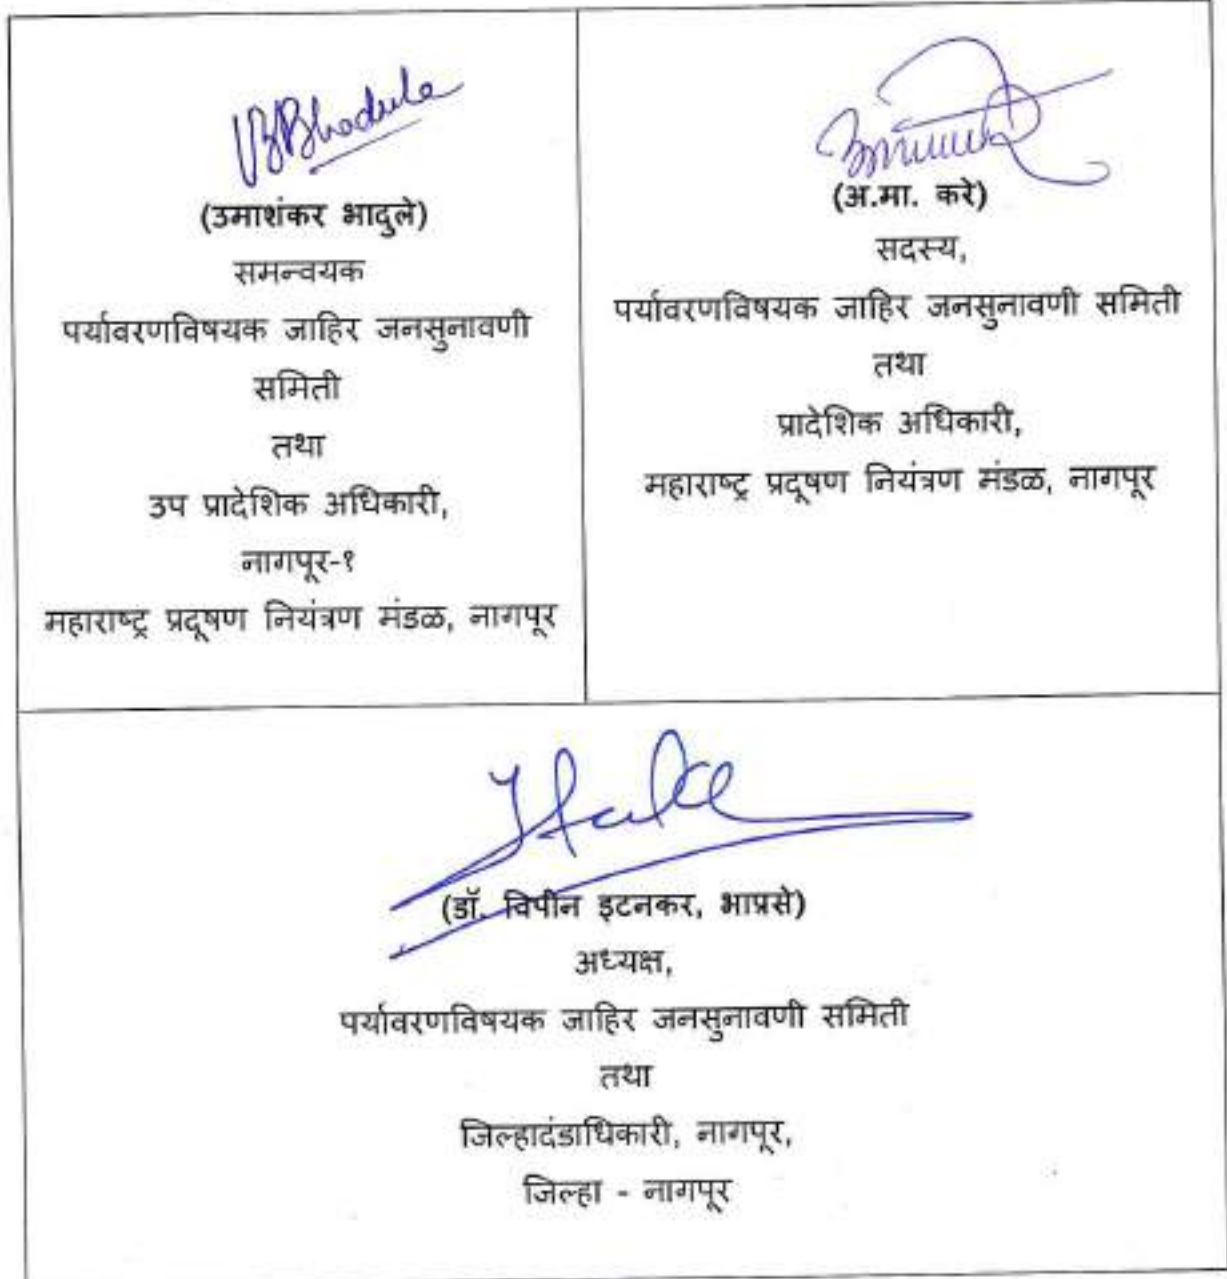 (उमाशंकर भादुले)
समन्वयक
पर्यावरणविषयक जाहिर जनसुनावणी
समिती
तथा
उप प्रादेशिक अधिकारी,
नागपूर-१
महाराष्ट्र प्रदूषण नियंत्रण मंडळ, नागपूर
(अ.मा. करे)
सदस्य,
पर्यावरणविषयक जाहिर जनसुनावणी समिती
तथा
प्रादेशिक अधिकारी,
महाराष्ट्र प्रदूषण नियंत्रण मंडळ, नागपूर
(डॉ. विपीन इटनकर, भाप्रसे)
अध्यक्ष,
पर्यावरणविषयक जाहिर जनसुनावणी समिती
तथा
जिल्हादंडाधिकारी, नागपूर,
जिल्हा - नागपूर